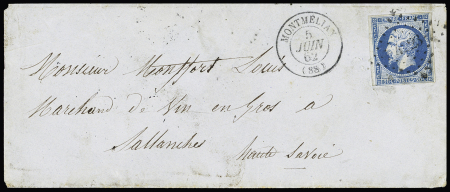 MONTMELIAN
5
JUIN
62
(88)
Monsieur Montfort Louis
Marchand de Vin en Gros à
Sallanches
haute Savoie